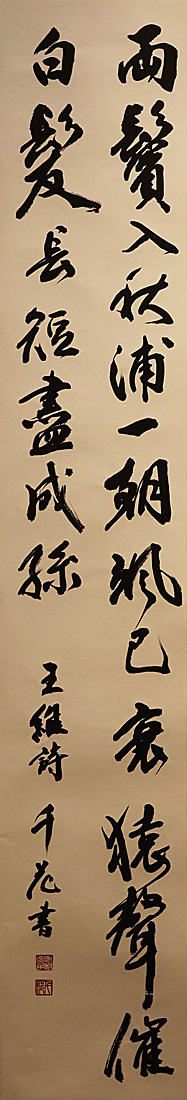 兩鬢入秋浦一朝飒已衰猿聲催
白髮長短盡成絲
王維詩 千花書